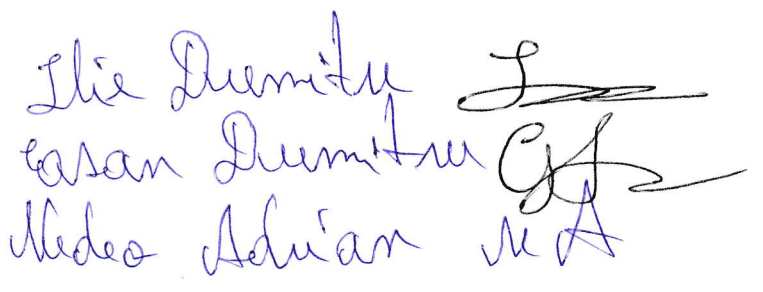 Ilie Dumitru
Casan Dumitru
Nedea Adrian NA